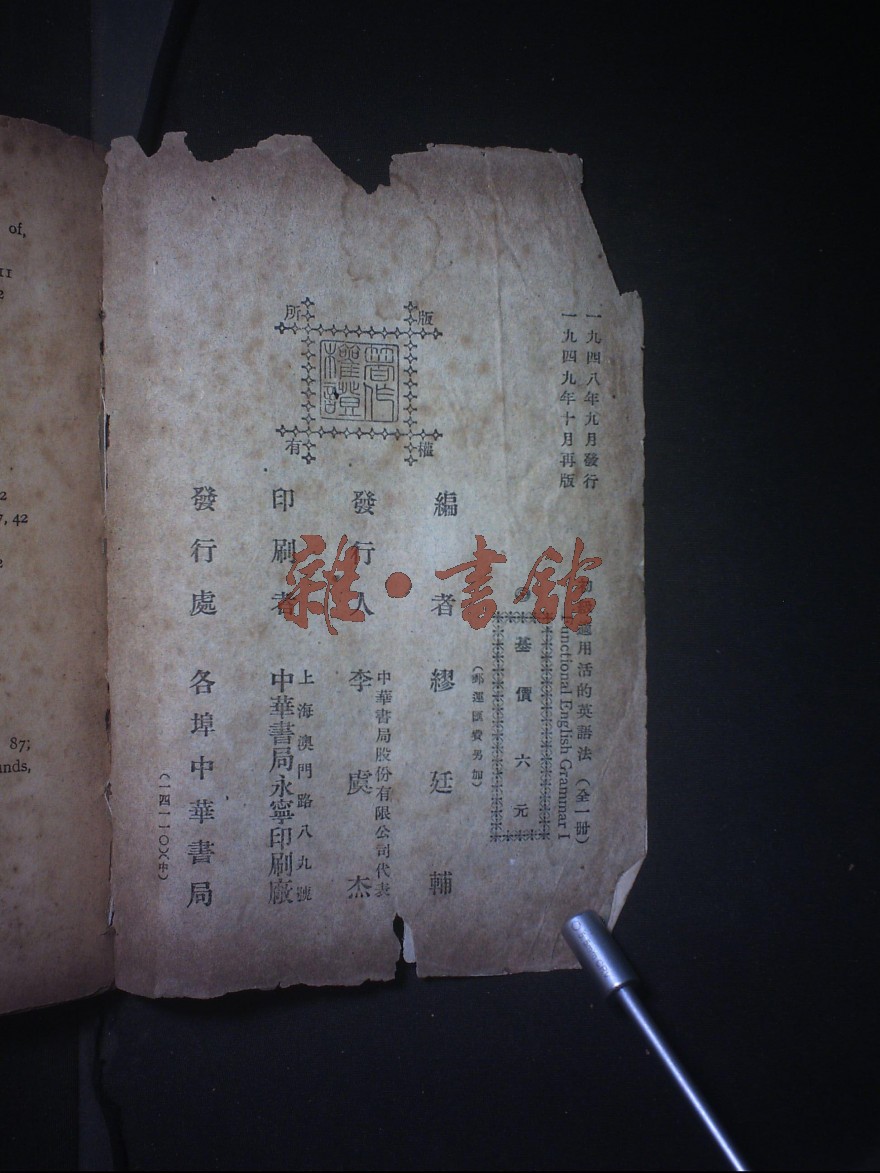 一九四八年九月發行
一九四九年十月再版
適用活的英語法（全一冊）
Functional English Grammar I
基價六元
（郵運匯費另加）
編者 繆廷輔
發行人 李虞杰
中華書局股份有限公司代表
印刷者 中華書局永寧印刷廠
上海澳門路八九號
發行處 各埠中華書局
（一四一一〇）（中）
版權所有
著作權證
雜·書館
of,
11
2
2
7, 42
2
87;
unds,